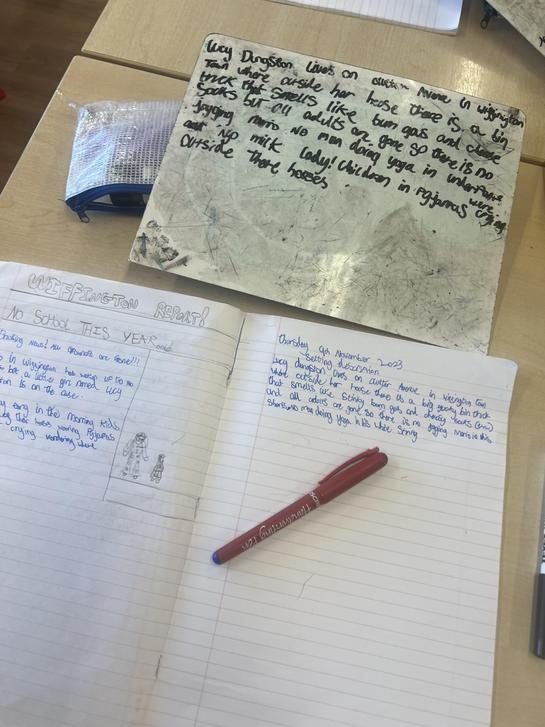 Lucy Dungston lives on clutter Avenue in wiggington
Town where outside her house there is a bin
truck that smells like burn gas and cheese
Socks but all adults are gone so there is no
Jogging mario No men doing yoga in underpants
and No milk lady! Children in Pyjamas were crying
Outside There houses
WIFFINGTON REPORT!
NO SCHOOL THIS YEAR
Breaking News! All Grownups are Gone!!!
in Wiggington has waking up to no
but a little girl named Lucy
is on the case.
early in the Morning kids
houses wearing Pyjamas
crying wondering where
Thursday 9th November 2023
Setting description
Lucy dungston lives on clutter Avenue in wiggington Town
where outside her house there is a big bin truck
that smells like stinky burn gas and cheesy socks
and all adults are gone so there is no jogging Mario in his
shorts no men doing yoga in his white
Handwriting Pen